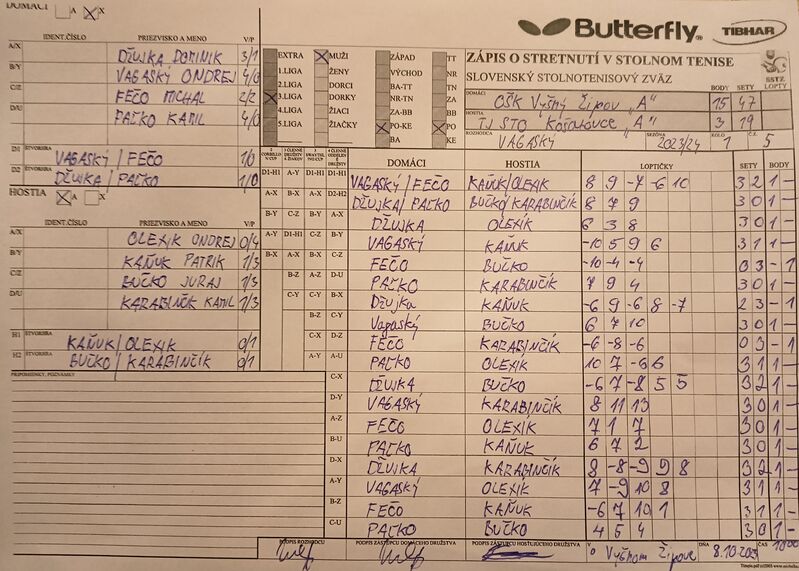 DOMÁCI A X
Butterfly® TIBHAR
IDENT.ČÍSLO PRIEZVISKO A MENO V/P
A/X DŽUJKA DOMINIK 3/1
B/Y VAGASKÝ ONDREJ 4/0
C/Z FEČO MICHAL 2/2
D/U PAĽKO KAMIL 4/0
D1 ŠTVORHRA VAGASKÝ / FEČO 1/0
D2 ŠTVORHRA DŽUJKA / PAĽKO 1/0
HOSTIA A X
IDENT.ČÍSLO PRIEZVISKO A MENO V/P
A/X OLEXIK ONDREJ 0/4
B/Y KAŇUK PATRIK 1/3
C/Z BUČKO JURAJ 1/3
D/U KARABINČÍK KAMIL 1/3
H1 ŠTVORHRA KAŇUK / OLEXIK 0/1
H2 ŠTVORHRA BUČKO / KARABINČÍK 0/1
PRIPOMIENKY, POZNÁMKY
EXTRA MUŽI ZÁPAD TT
1.LIGA ŽENY VÝCHOD NR
2.LIGA DORCI BA-TT TN
3.LIGA DORKY NR-TN ZA
4.LIGA ŽIACI ZA-BB BB
5.LIGA ŽIAČKY PO-KE PO
BA KE
ZÁPIS O STRETNUTÍ V STOLNOM TENISE
SLOVENSKÝ STOLNOTENISOVÝ ZVÄZ
SSTZ
BODY SETY LOPTY
DOMÁCI OŠK VYŠNÝ ŽIPOV „A" 15 47
HOSTIA TJ STO KOŠAROVCE „A" 3 19
ROZHODCA VAGASKÝ SEZÓNA 2023/24 KOLO 1 Č. 5
DOMÁCI HOSTIA LOPTIČKY SETY BODY
D1-H1 A-Y D1-H1 D1-H1 VAGASKÝ / FEČO KAŇUK/OLEXIK 8 9 -7 -6 10 3 2 1 -
A-X B-X A-X D2-H2 DŽUJKA/ PAĽKO BUČKO/KARABINČÍK 8 7 9 3 0 1 -
B-Y C-Z B-Y A-X DŽUJKA OLEXIK 6 3 8 3 0 1 -
A-Y D1-H1 C-Z B-Y VAGASKÝ KAŇUK -10 5 9 6 3 1 1 -
B-X A-X B-X C-Z FEČO BUČKO -10 -4 -4 0 3 - 1
B-Z A-Z D-U PAĽKO KARABINČÍK 7 9 4 3 0 1 -
C-Y C-Y B-X DŽUJKA KAŇUK -6 9 -6 8 -7 2 3 - 1
B-Z C-Y Vagaský BUČKO 6 7 10 3 0 1 -
C-X D-Z FEČO KARABINČÍK -6 -8 -6 0 3 - 1
A-Y A-U PAĽKO OLEXIK 10 7 -6 6 3 1 1 -
C-X DŽUJKA BUČKO -6 7 -8 5 5 3 2 1 -
D-Y VAGASKÝ KARABINČÍK 8 11 13 3 0 1 -
A-Z FEČO OLEXIK 7 1 7 3 0 1 -
B-U PAĽKO KAŇUK 6 7 2 3 0 1 -
D-X DŽUJKA KARABINČÍK 8 -8 -9 9 8 3 2 1 -
A-Y VAGASKÝ OLEXIK 7 -9 10 8 3 1 1 -
B-Z FEČO KAŇUK -6 7 10 1 3 1 1 -
C-U PAĽKO BUČKO 4 5 4 3 0 1 -
PODPIS ROZHODCU PODPIS ZÁSTUPCU DOMÁCEHO DRUŽSTVA PODPIS ZÁSTUPCU HOSŤUJÚCEHO DRUŽSTVA V Vyšnom Žipove DŇA 8.10.2023 ČAS 10:00